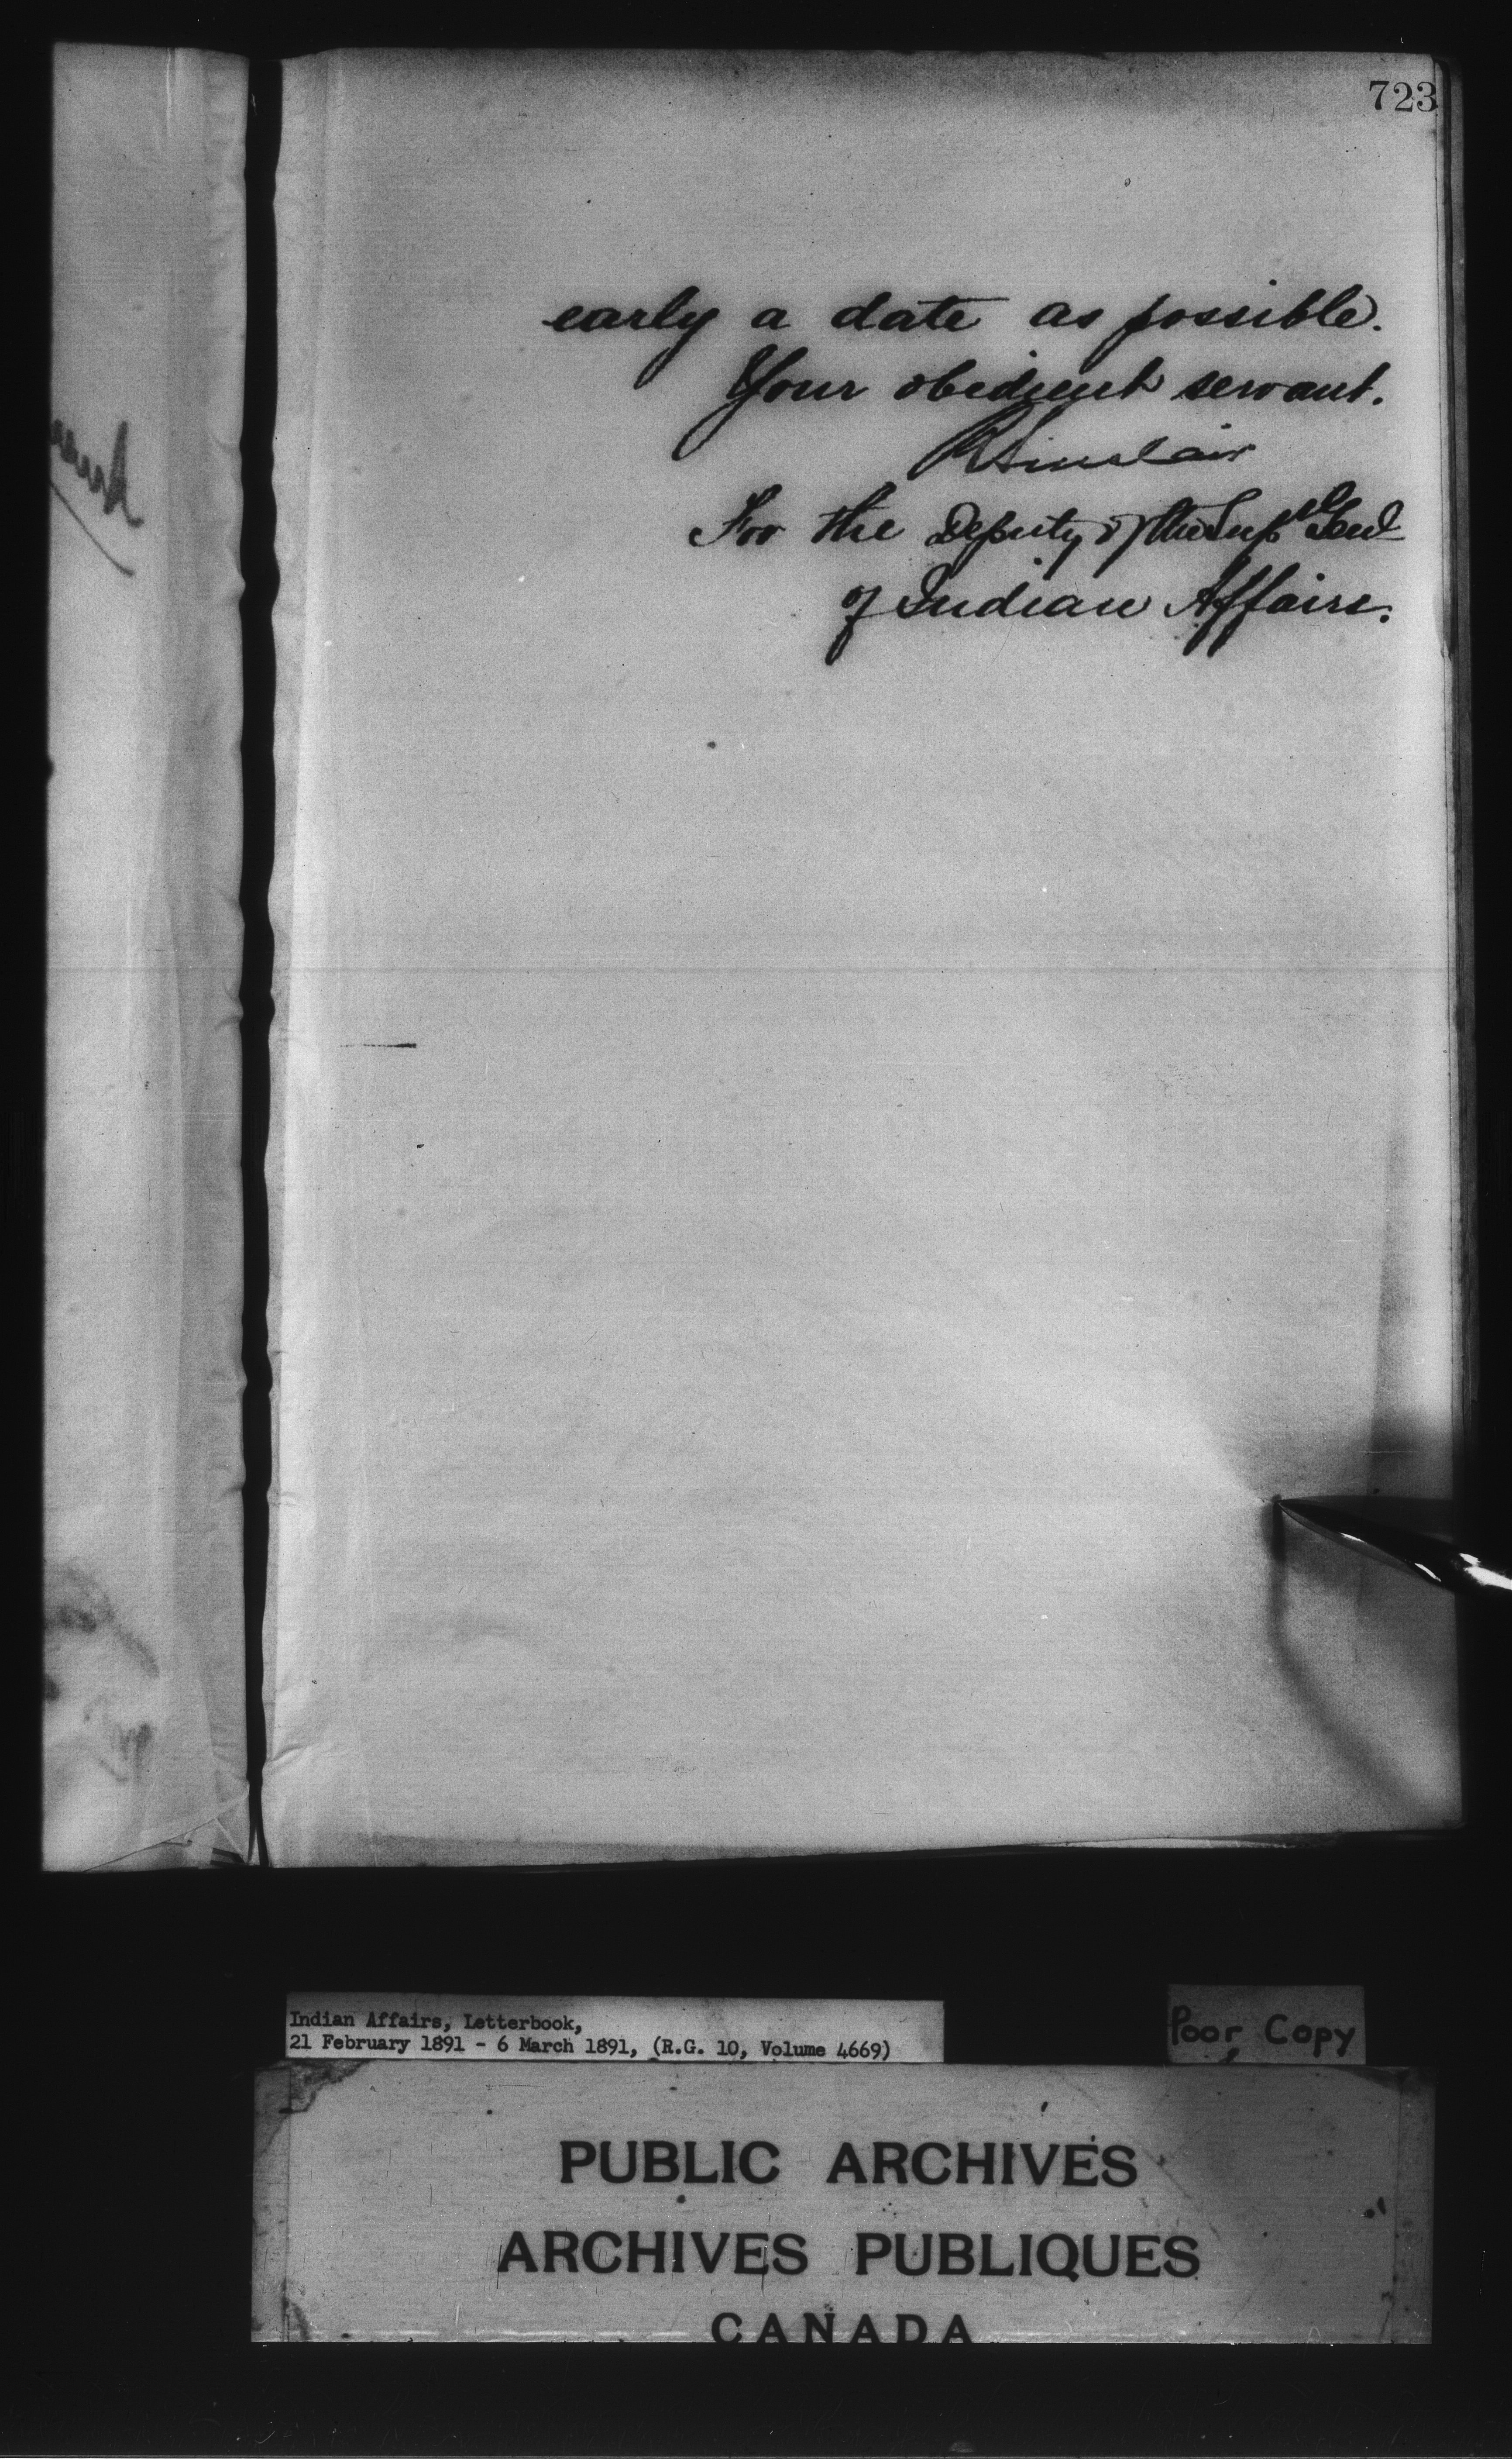 723
early a date as possible.
Your obedient servant.
R Sinclair
For the Deputy of the Supt Genl
of Indian Affairs.
Indian Affairs, Letterbook,
21 February 1891 - 6 March 1891, (R.G. 10, Volume 4669)
Poor Copy
PUBLIC ARCHIVES
ARCHIVES PUBLIQUES
CANADA